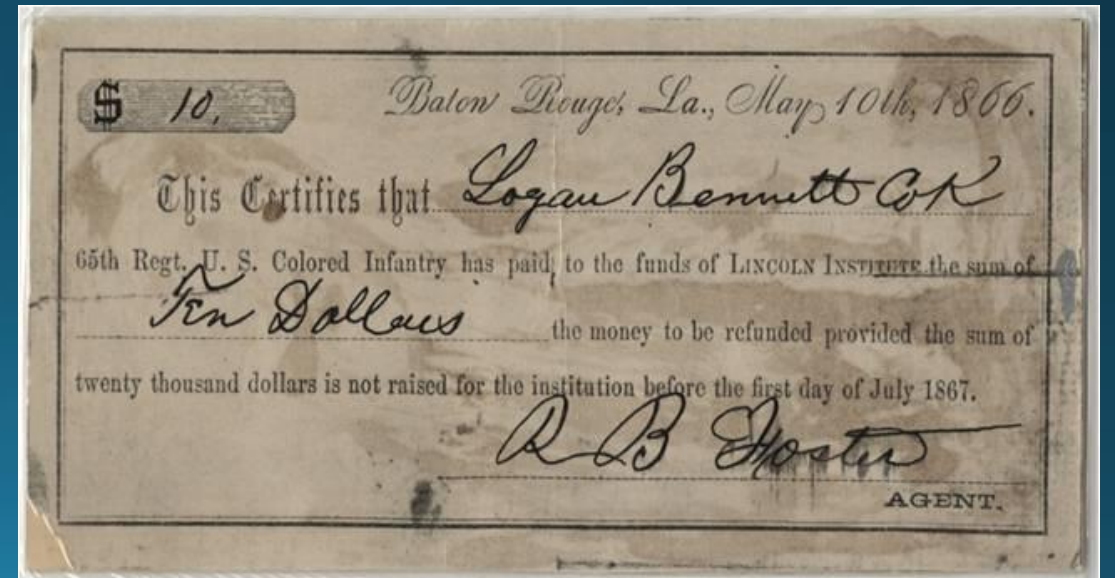 $ 10, Baton Rouge, La., May 10th, 1866.
This Certifies that Logan Bennett Co K
65th Regt. U. S. Colored Infantry has paid to the funds of LINCOLN INSTITUTE the sum of
Ten Dollars the money to be refunded provided the sum of
twenty thousand dollars is not raised for the institution before the first day of July 1867.
R B Foster
AGENT.